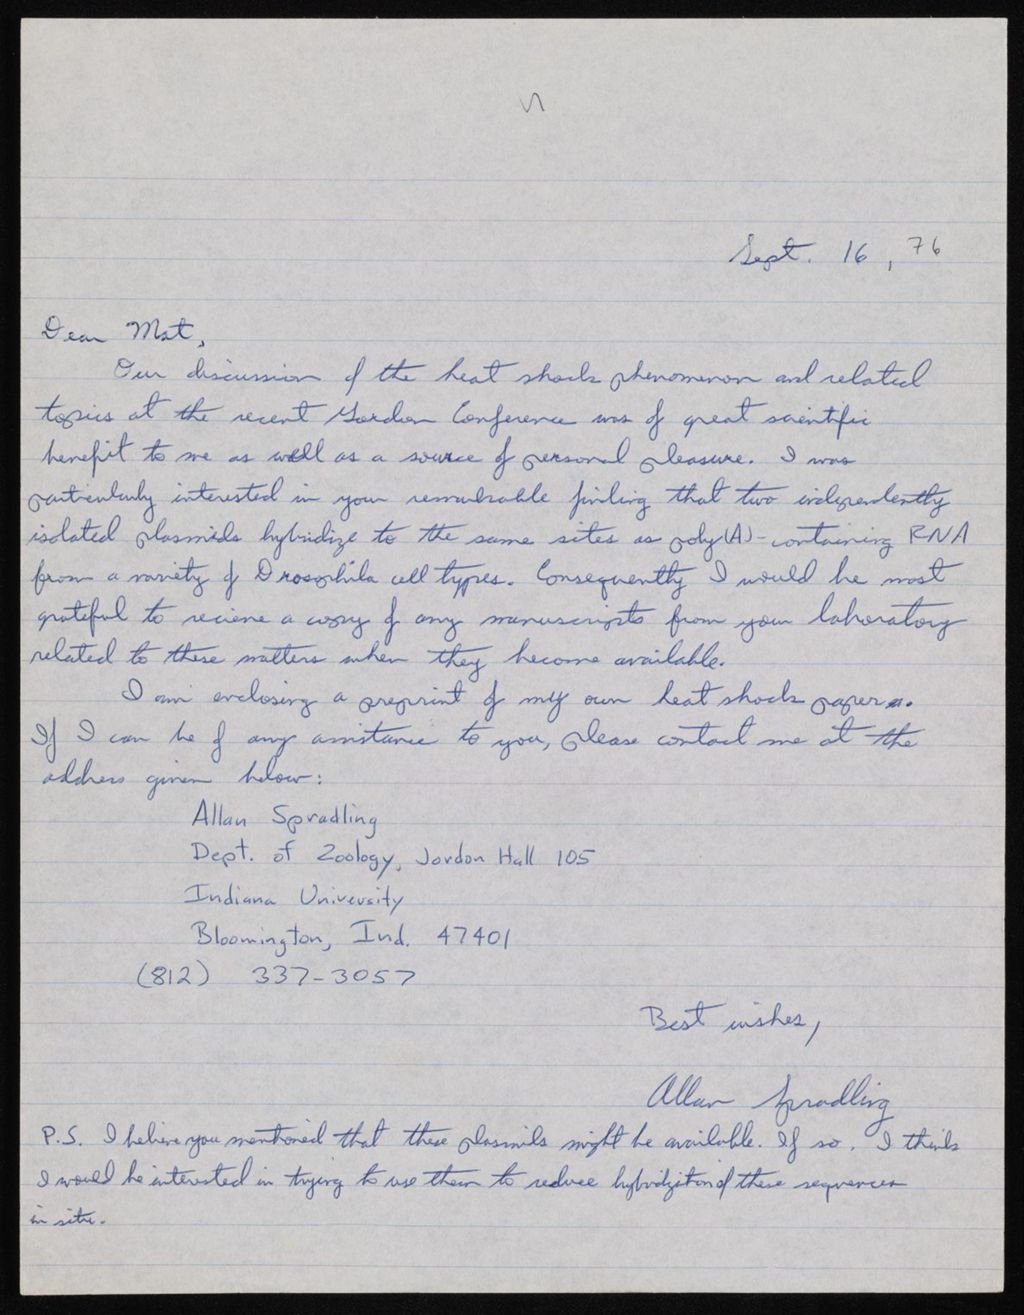 Sept. 16, 76
Dear Mat,
Our discussion of the heat shock phenomenon and related
topics at the recent Gordon Conference was of great scientific
benefit to me as well as a source of personal pleasure. I was
particularly interested in your remarkable finding that two independently
isolated plasmids hybridize to the same sites as poly(A)-containing RNA
from a variety of Drosophila cell types. Consequently I would be most
grateful to recieve a copy of any manuscripts from your laboratory
related to these matters when they become available.
I am enclosing a preprint of my own heat shock paper.
If I can be of any assistance to you, please contact me at the
address given below:
Allan Spradling
Dept. of Zoology, Jordon Hall 105
Indiana University
Bloomington, Ind. 47401
(812) 337-3057
Best wishes,
Allan Spradling
P.S. I believe you mentioned that these plasmids might be available. If so, I think
I would be interested in trying to use them to reduce hybridization of these sequences
in situ.